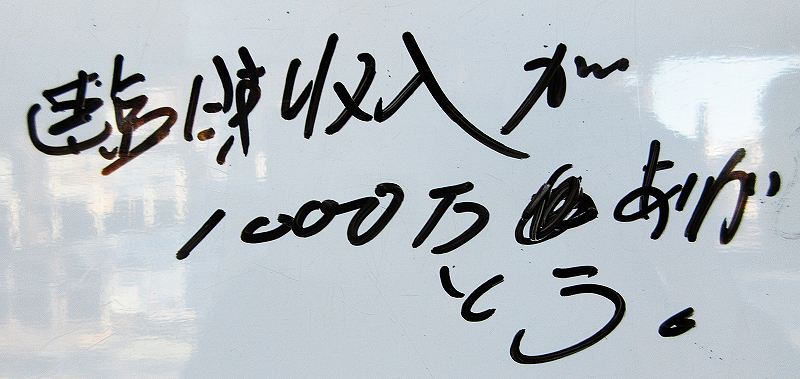 臨時収入が
1000万ありが
とう。